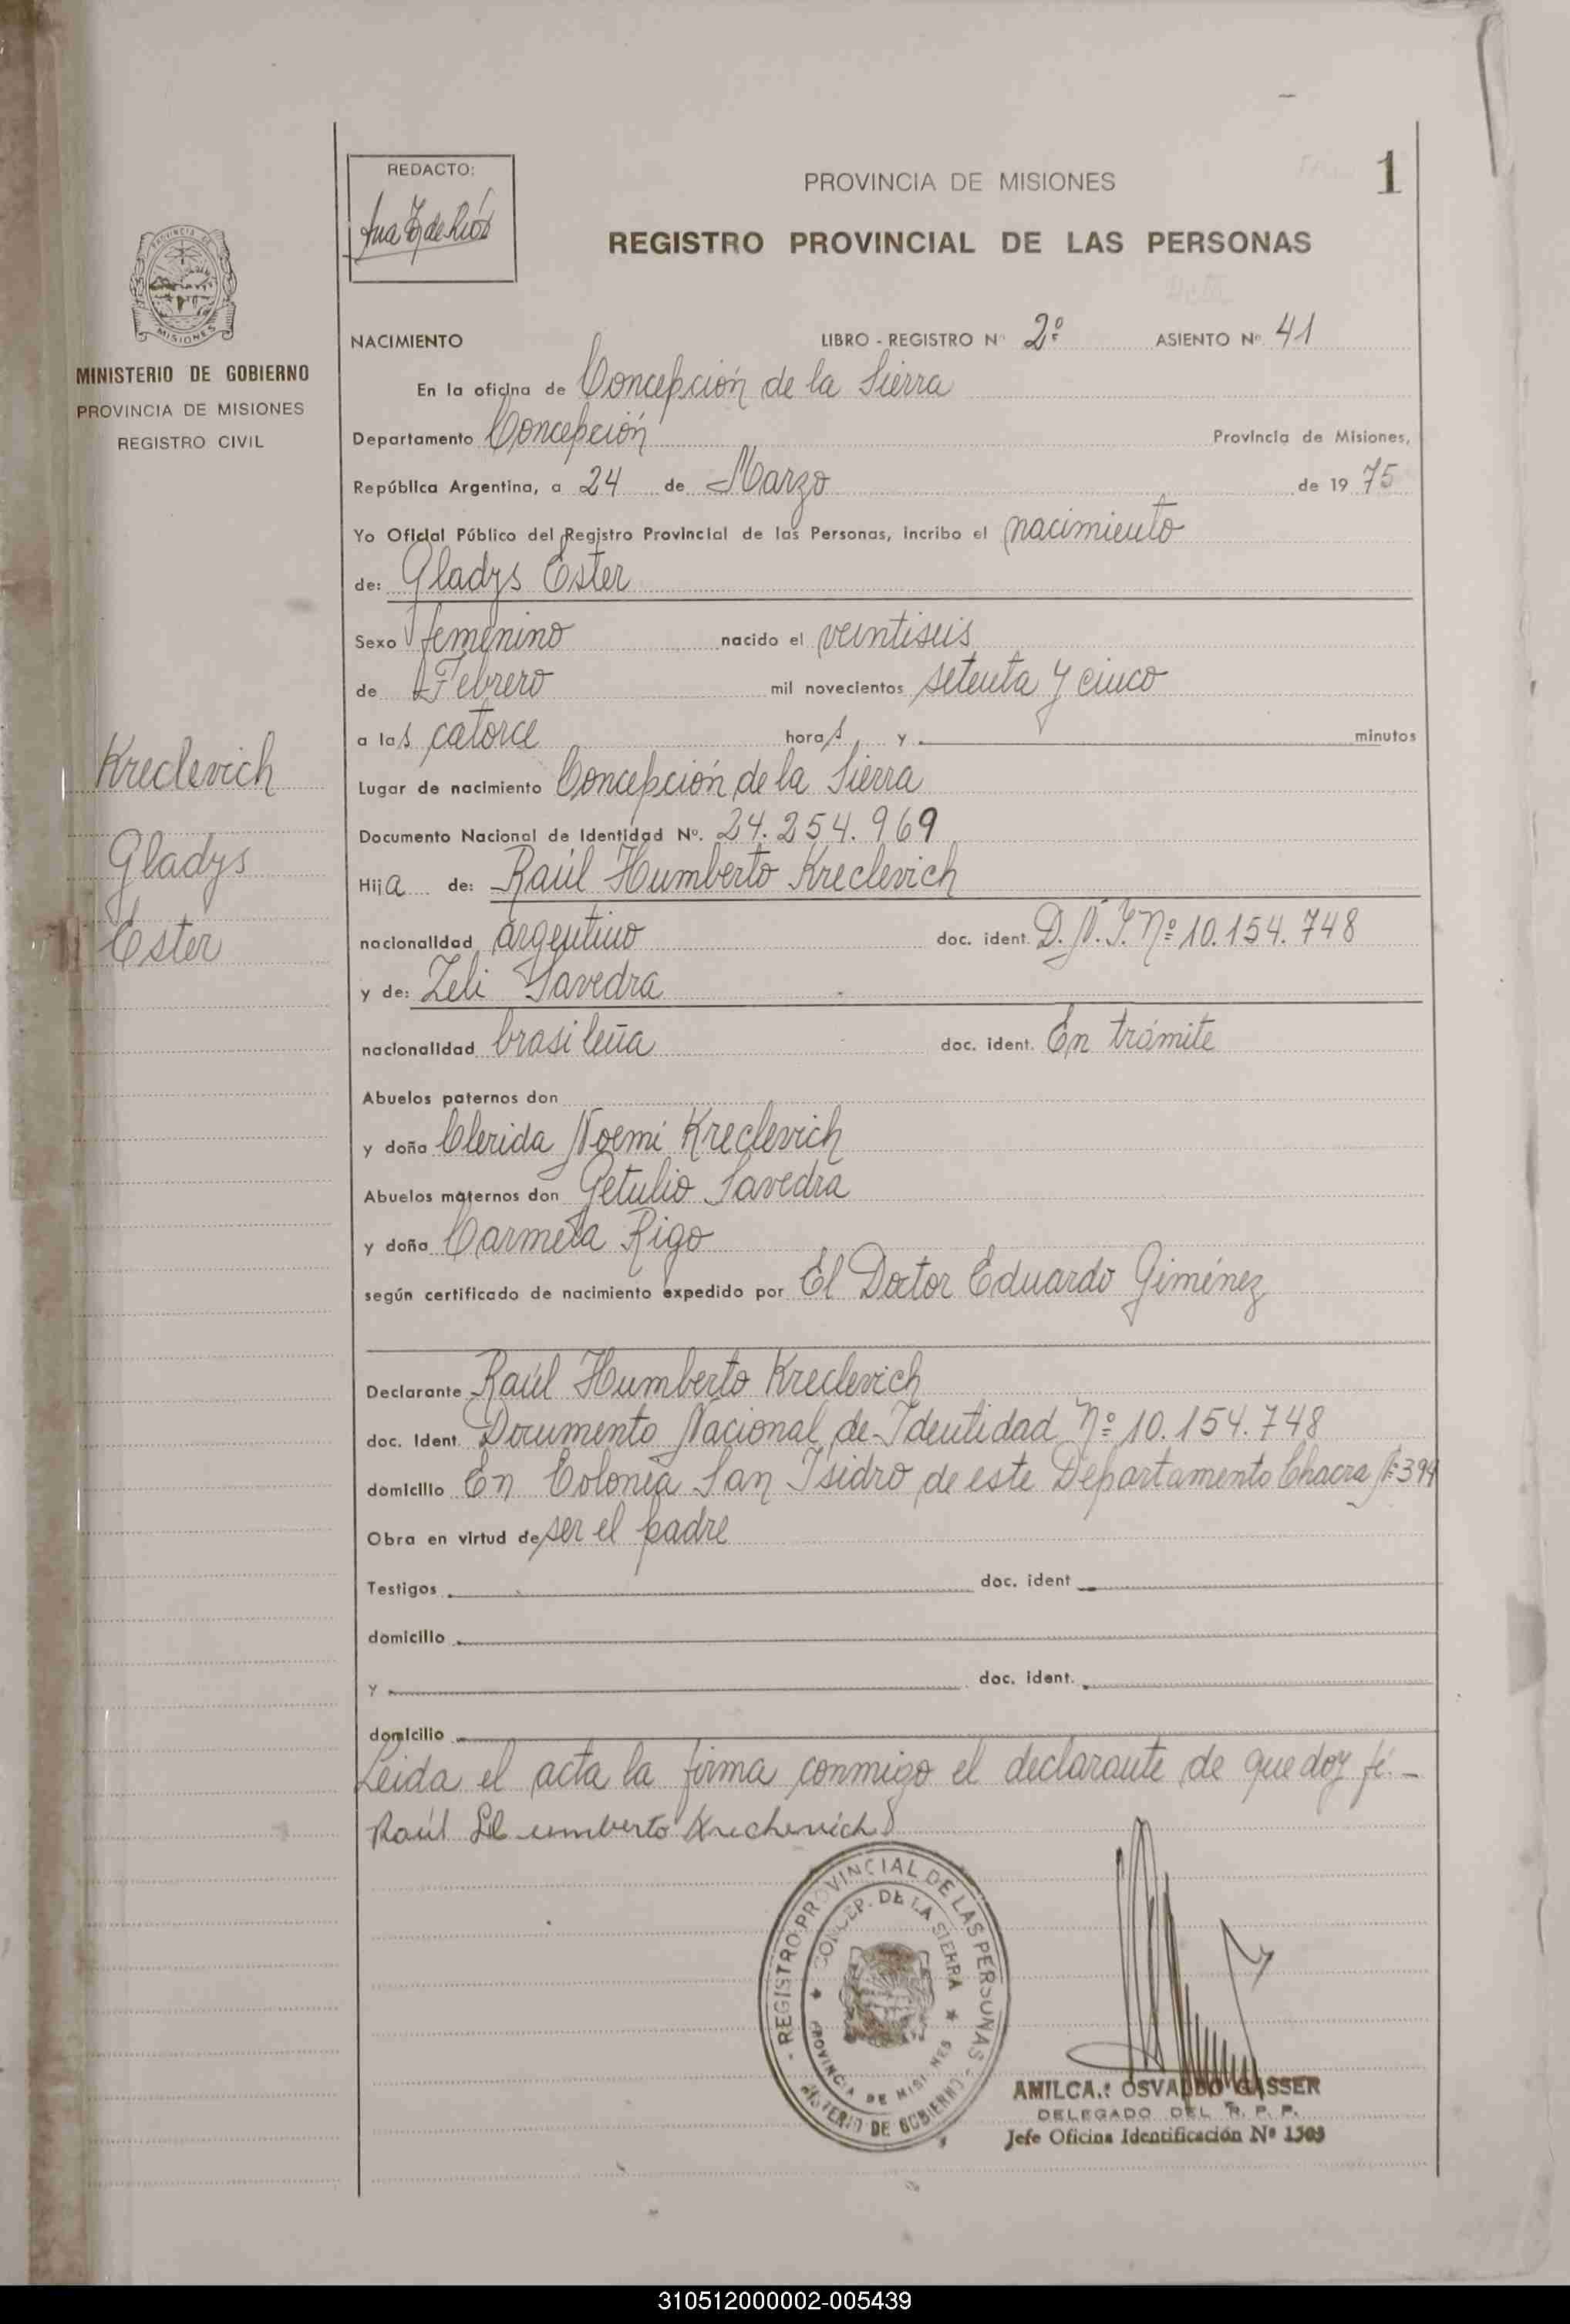 REDACTO:
Ana E. de Ríos
PROVINCIA DE MISIONES
1
REGISTRO PROVINCIAL DE LAS PERSONAS
PROVINCIA DE
MISIONES
MINISTERIO DE GOBIERNO
PROVINCIA DE MISIONES
REGISTRO CIVIL
Kreclevich
Gladys
Ester
NACIMIENTO LIBRO - REGISTRO Nº 2º ASIENTO Nº 41
En la oficina de Concepción de la Sierra
Departamento Concepción Provincia de Misiones,
República Argentina, a 24 de Marzo de 19 75
Yo Oficial Público del Registro Provincial de las Personas, incribo el nacimiento
de: Gladys Ester
Sexo femenino nacido el veintiseis
de Febrero mil novecientos setenta y cinco
a las catorce horas y minutos
Lugar de nacimiento Concepción de la Sierra
Documento Nacional de Identidad Nº. 24.254.969
Hija de: Raúl Humberto Kreclevich
nacionalidad argentino doc. ident. D.N.I. Nº 10.154.748
y de: Zeli Savedra
nacionalidad brasileña doc. ident. En trámite
Abuelos paternos don
y doña Clerida Noemí Kreclevich
Abuelos maternos don Getulio Savedra
y doña Carmela Rigo
según certificado de nacimiento expedido por El Doctor Eduardo Giménez
Declarante Raúl Humberto Kreclevich
doc. Ident. Documento Nacional de Identidad Nº 10.154.748
domicilio En Colonia San Isidro de este Departamento Chacra Nº 394
Obra en virtud de ser el padre
Testigos doc. ident
domicilio
y doc. ident.
domicilio
Leida el acta la firma conmigo el declarante de que doy fé.-
Raúl Humberto Krechevich
REGISTRO PROVINCIAL DE LAS PERSONAS
CONCEP. DE LA SIERRA
PROVINCIA DE MISIONES
MINISTERIO DE GOBIERNO
AMILCAR OSVALDO GASSER
DELEGADO DEL R. P. P.
Jefe Oficina Identificación Nº 1503
310512000002-005439